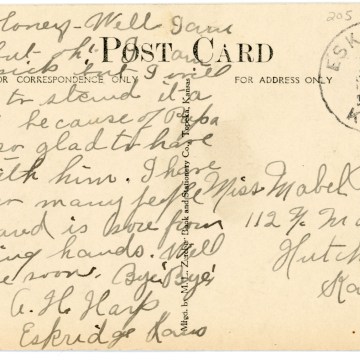 Honey - Well I am
but oh! I am
sick but I will
to stand it a
because of Papa
so glad to have
with him. I have
so many people
hand is sore from
ing hands. Well
e soon. Bye Bye.
A. H. Harp
Eskridge Kans
POST CARD
FOR CORRESPONDENCE ONLY
FOR ADDRESS ONLY
Mfgt. by M. L. Zercher Book and Stationery Co., Topeka, Kansas
205
ESK
K
Miss Mabel
112 N. M
Hutch
Ka